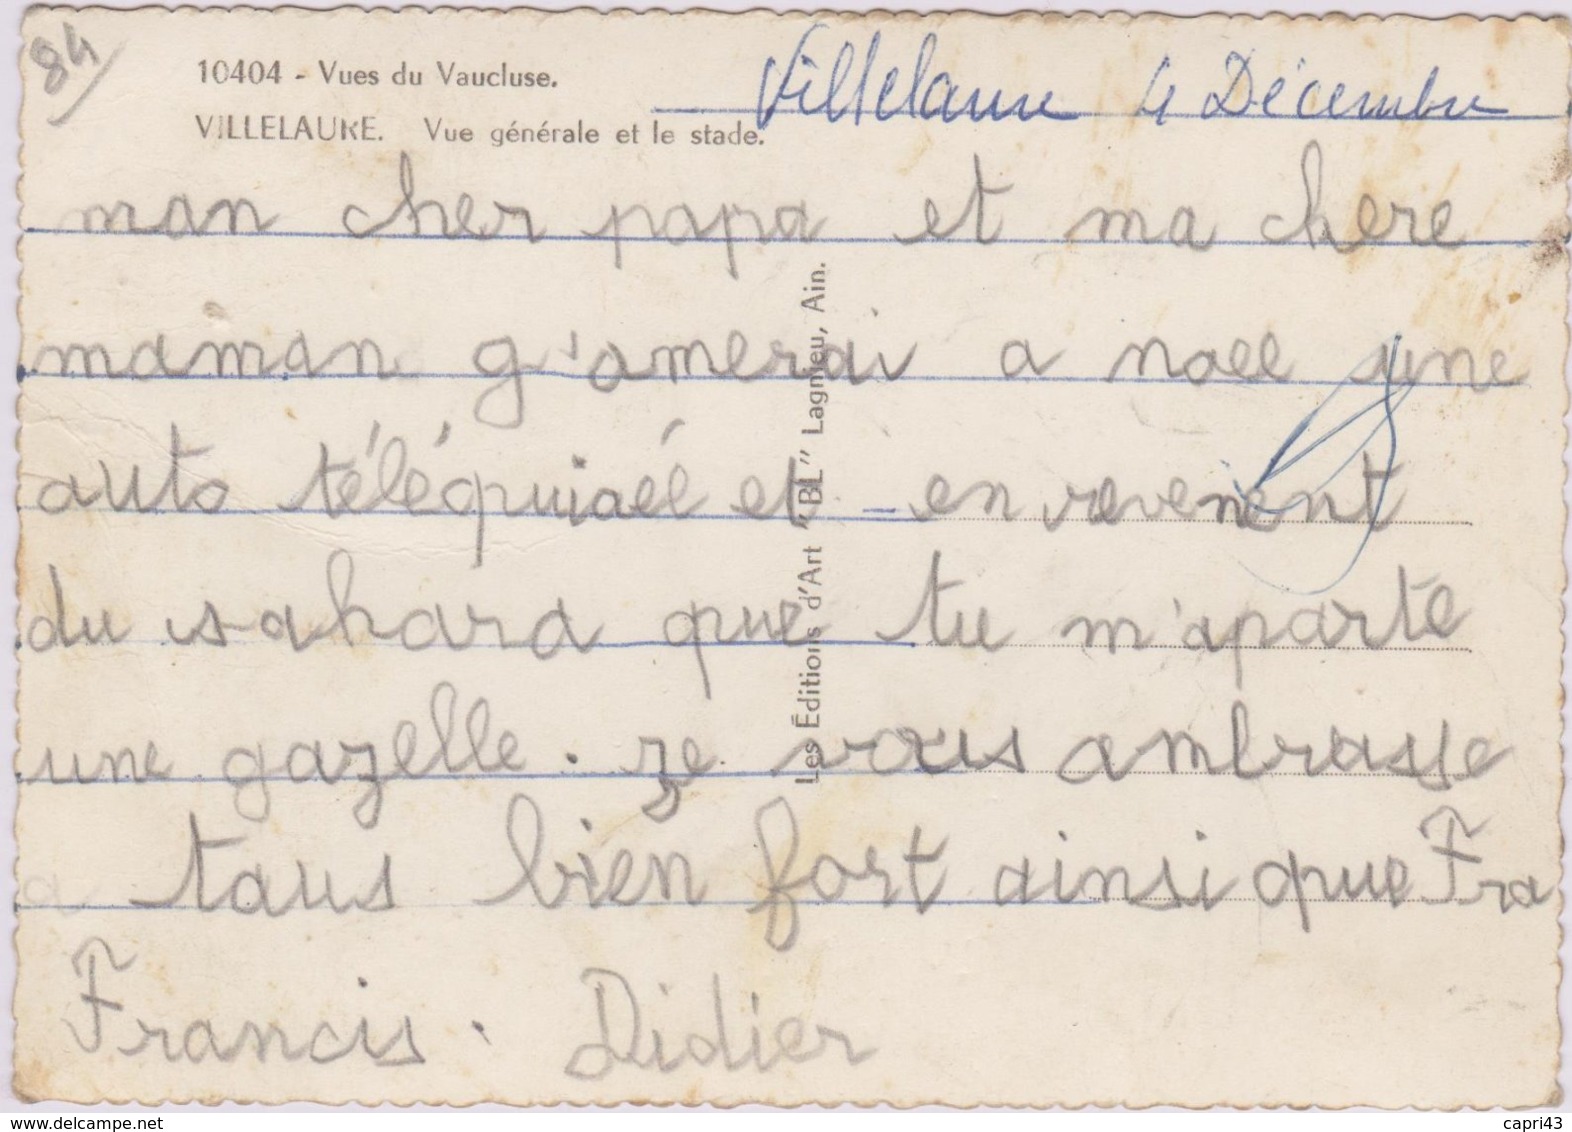 84
10404 - Vues du Vaucluse.
VILLELAURE. Vue générale et le stade.
Villelaure 4 Décembre
mon cher papa et ma chere
maman g'amerai a noel une
auto téléquiaél et en revenent
du sahara que tu m'aporte
une gazelle. je vous ambrasse
a tous bien fort ainsi que Fra
Francis. Didier
Les Éditions d'Art "BL" Lagnieu, Ain.
www.delcampe.net
capri43